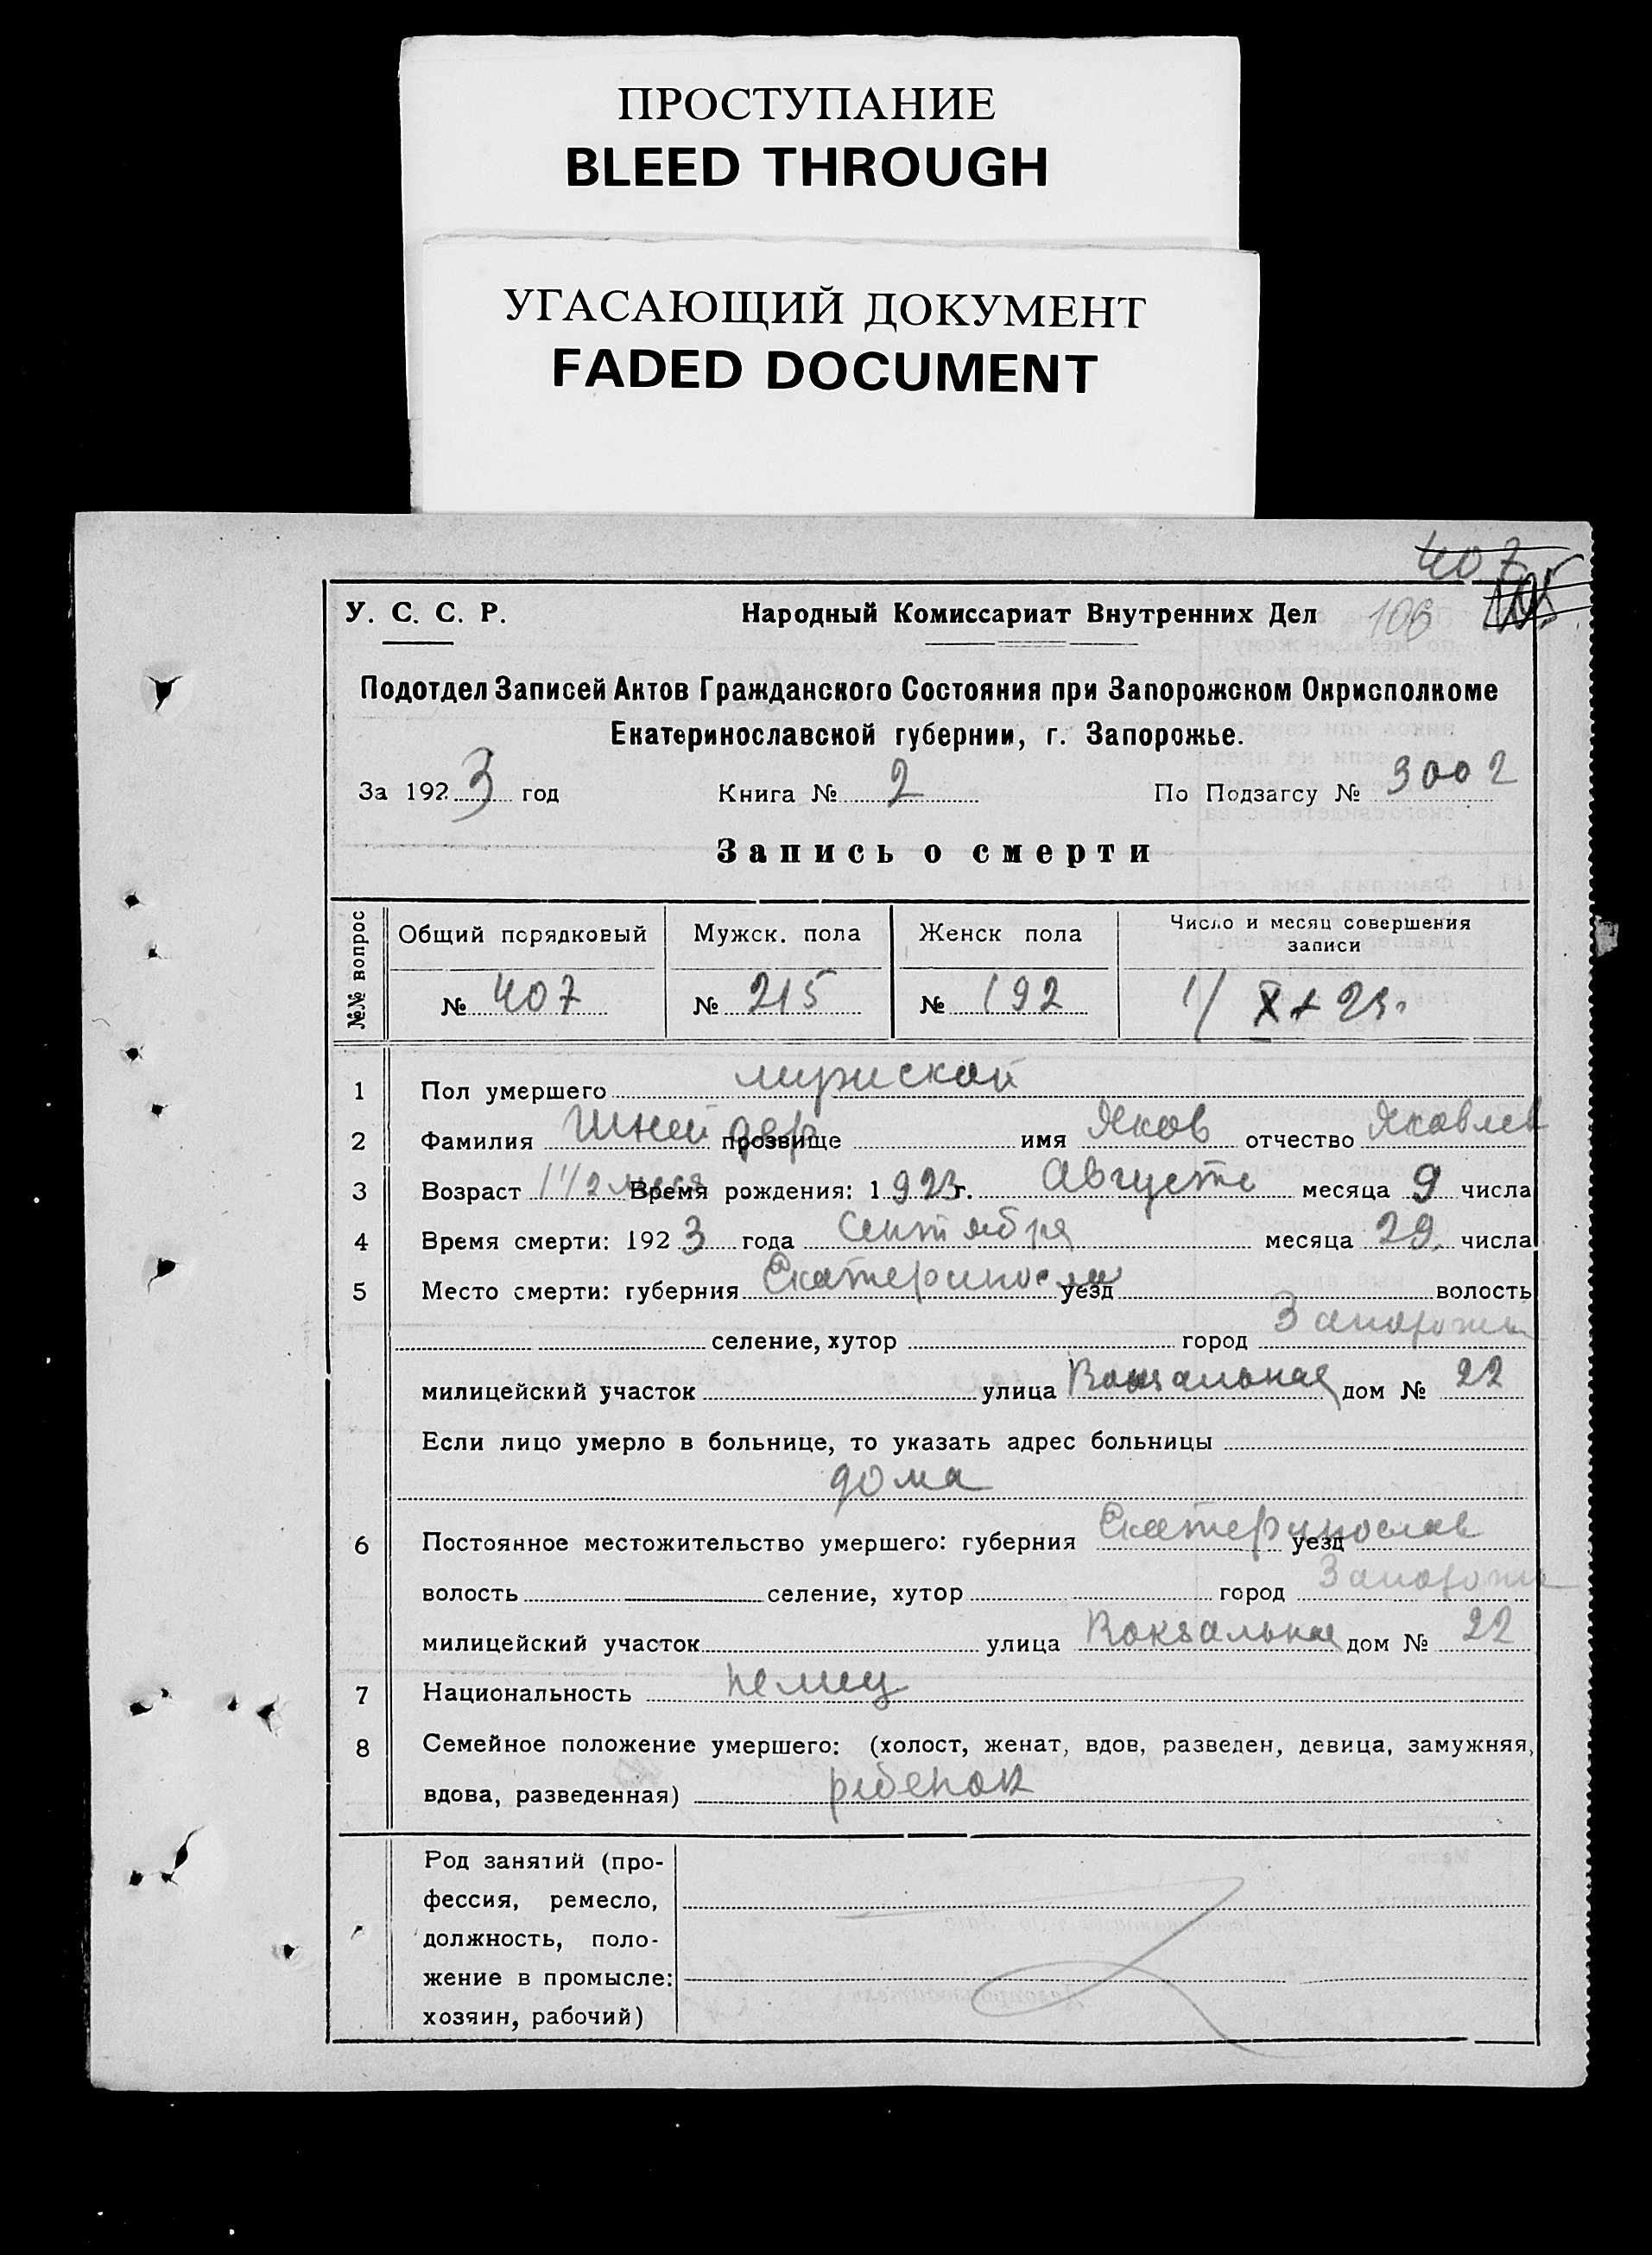 ПРОСТУПАНИЕ
BLEED THROUGH
УГАСАЮЩИЙ ДОКУМЕНТ
FADED DOCUMENT
407
У. С. С. Р. Народный Комиссариат Внутренних Дел 106
Подотдел Записей Актов Гражданского Состояния при Запорожском Окрисполкоме
Екатеринославской губернии, г. Запорожье.
За 1923 год Книга № 2 По Подзагсу № 3002
Запись о смерти
№№ вопрос
Общий порядковый Мужск. пола Женск пола Число и месяц совершения записи
№ 407 № 215 № 192 1/X 23.
1 Пол умершего мужской
2 Фамилия Шнейдер прозвище имя Яков отчество Яковлев
3 Возраст 1 1/2 меся Время рождения: 1923 г. Августа месяца 9 числа
4 Время смерти: 1923 года Сентября месяца 29. числа
5 Место смерти: губерния Екатеринослав уезд волость
селение, хутор город Запорожье
милицейский участок улица Вокзальная дом № 22
Если лицо умерло в больнице, то указать адрес больницы
дома
6 Постоянное местожительство умершего: губерния Екатеринослав уезд
волость селение, хутор город Запорожье
милицейский участок улица Вокзальная дом № 22
7 Национальность немец
8 Семейное положение умершего: (холост, женат, вдов, разведен, девица, замужняя,
вдова, разведенная) ребенок
Род занятий (про-
фессия, ремесло,
должность, поло-
жение в промысле:
хозяин, рабочий)